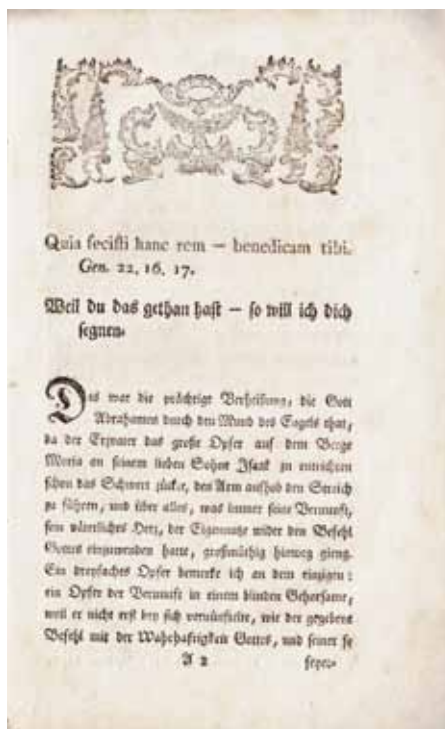 Quia fecisti hanc rem — benedicam tibi.
Gen. 22, 16, 17.
Weil du das gethan hast — so will ich dich
segnen.
Das war die prächtige Verheißung, die Gott
Abrahamen durch den Mund des Engels that,
da der Erzvater das große Opfer auf dem Berge
Moria an seinem lieben Sohne Isaak zu entrichten
schon das Schwert zückte, den Arm aufhob den Streich
zu führen, und über alles, was immer seine Vernunft,
sein väterliches Herz, der Eigennutz wider den Befehl
Gottes einzuwenden hatte, großmüthig hinweg gieng.
Ein dreyfaches Opfer bemerke ich an dem einzigen:
ein Opfer der Vernunft in einem blinden Gehorsame,
weil er nicht erst bey sich vernünftelte, wie der gegebene
Befehl mit der Wahrhaftigkeit Gottes, und seiner so
A 2 feyer-